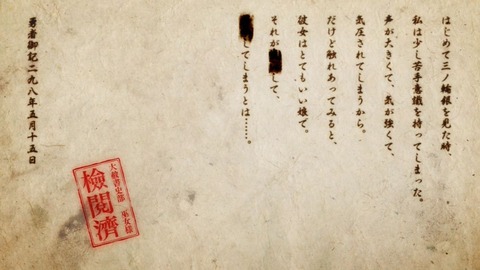 はじめて三ノ輪銀を見た時、
私は少し苦手意識を持ってしまった。
声が大きくて、気が強くて、
気圧されてしまうから。
だけど触れあってみると、
彼女はとてもいい娘で。
それが して、
してしまうとは……。
勇者御記二九八年五月十五日
大赦書史部 巫女様
検閲済